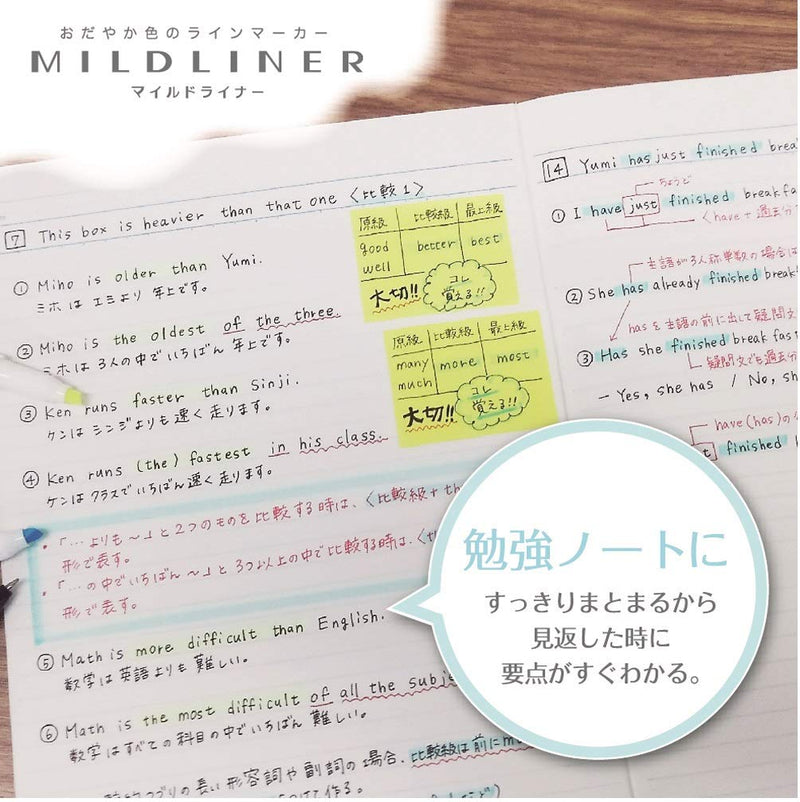 おだやか色のラインマーカー
MILDLINER
マイルドライナー
7 This box is heavier than that one 〈比較1〉
① Miho is older than Yumi.
ミホはエミより年上です。
② Miho is the oldest of the three.
ミホは3人の中でいちばん年上です。
③ Ken runs faster than Sinji.
ケンはシンジよりも速く走ります。
④ Ken runs (the) fastest in his class.
ケンはクラスでいちばん速く走ります。
・「…よりも〜」と2つのものを比較する時は、〈比較級+th
形で表す。
・「…の中でいちばん〜」と3つ以上の中で比較する時は、〈th
形で表す。
⑤ Math is more difficult than English.
数学は英語よりも難しい。
⑥ Math is the most difficult of all the subje
数学はすべての科目の中でいちばん難しい。
つづりの長い形容詞や副詞の場合、比較級は前にm
つけて作る。
原級 比較級 最上級
good better best
well
大切!! コレ覚える!!
原級 比較級 最上級
many more most
much
大切!! コレ覚える!!
14 Yumi has just finished brea
ちょうど
① I have just finished breakfa
〈have+過去分
主語が3人称単数の場合は
② She has already finished break
hasを主語の前に出して疑問文
③ Has she finished breakfas
疑問文でも過去分
- Yes, she has / No, sh
have(has)の
finished b
勉強ノートに
すっきりまとまるから
見返した時に
要点がすぐわかる。